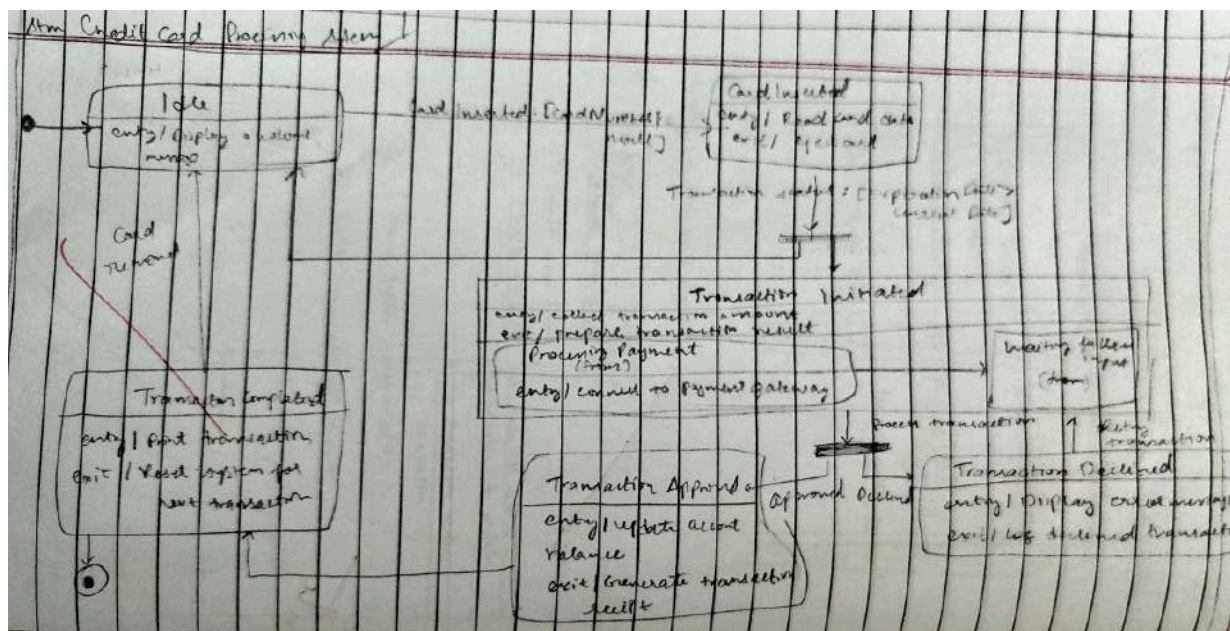 Atm Credit Card Processing
Idle
entry/Display welcome
Card Inserted: [Card
Card Inserted
entry/ Read card data
exit/ eject card
Transaction status: [Expiration date>
current date]
Card
removed
Transaction Initiated
entry/ collect transaction amount
exit/ prepare transaction result
Processing Payment
entry/ connect to payment gateway
Waiting
input
process transaction
Retry
transaction
Transaction Completed
entry/ Print transaction
exit / Reset system for
next transaction
Transaction Approved
entry/ update
balance
exit/ Generate transaction
Approved
Transaction Declined
entry/ Display error message
exit/ log declined transaction